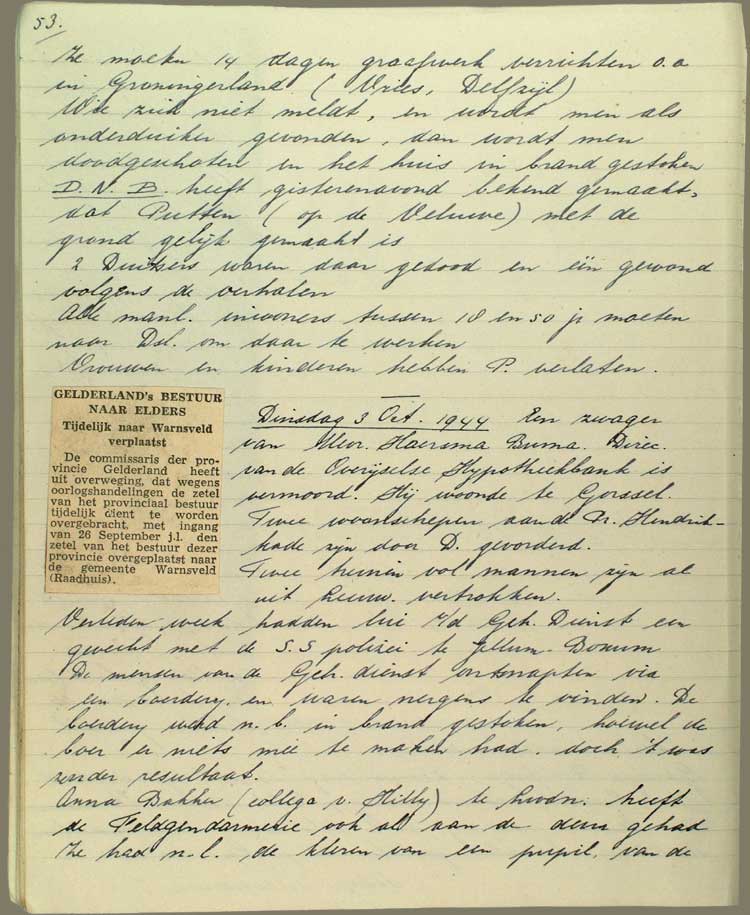 53.
Ze moeten 14 dagen graafwerk verrichten o.a
in Groningerland. (Vries, Delfzijl)
Wie zich niet meldt, en wordt men als
onderduiker gevonden, dan wordt men
doodgeschoten en het huis in brand gestoken
D.N.B. heeft gisterenavond bekend gemaakt,
dat Putten (op de Veluwe) met de
grond gelijk gemaakt is
2 Duitsers waren daar gedood en één gewond
volgens de verhalen
Alle manl. inwoners tussen 18 en 50 jr moeten
naar Dsl. om daar te werken
Vrouwen en kinderen hebben P. verlaten.
GELDERLAND's BESTUUR
NAAR ELDERS
Tijdelijk naar Warnsveld
verplaatst
De commissaris der pro-
vincie Gelderland heeft
uit overweging, dat wegens
oorlogshandelingen de zetel
van het provinciaal bestuur
tijdelijk dient te worden
overgebracht, met ingang
van 26 September j.l. den
zetel van het bestuur dezer
provincie overgeplaatst naar
de gemeente Warnsveld
(Raadhuis).
Dinsdag 3 Oct. 1944 Een zwager
van Mevr. Haersma Buma. Direc.
van de Overijselse Hypotheekbank is
vermoord. Hij woonde te Gorssel.
Twee woonschepen aan de Pr. Hendrik-
kade zijn door D. gevorderd.
Twee treinen vol mannen zijn al
uit Leeuw. vertrokken.
Verleden week hadden lui v/d Geh. Dienst een
gevecht met de S.S polizei te Jellum-Boxum
De mensen van de Geh. dienst ontsnapten via
een boerdery en waren nergens te vinden. De
boerdery werd n.b. in brand gestoken, hoewel de
boer er niets mee te maken had. doch 't was
zonder resultaat.
Anna Bakker (collega v. Hilly) te Lwdn. heeft
de Feldgendarmerie ook al aan de deur gehad
Ze had n.l. de kleren van een pupil, van de